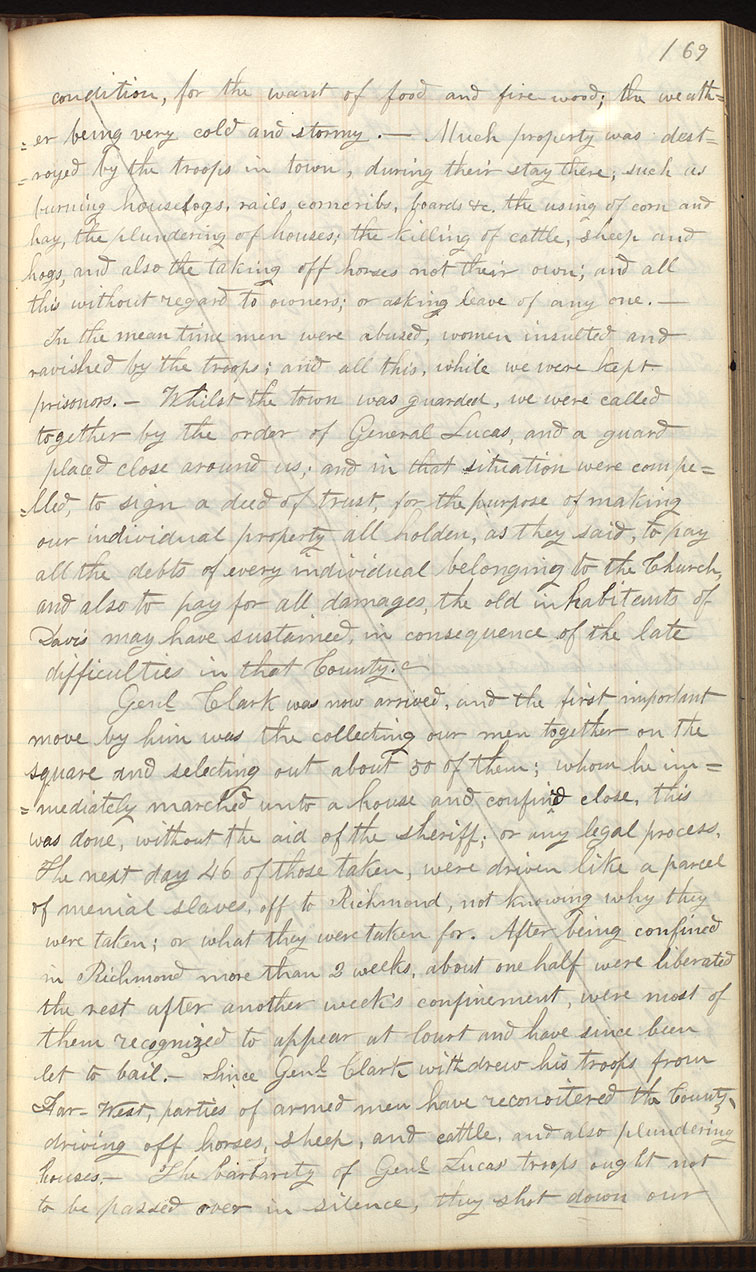 169
condition, for the want of food and fire-wood; the weath=
=er being very cold and stormy. — Much property was dest=
=royed by the troops in town, during their stay there; such as
burning houselogs, rails, corncribs, boards &c. the using of corn and
hay, the plundering of houses, the killing of cattle, sheep and
hogs, and also the taking off horses not their own; and all
this without regard to owners; or asking leave of any one. —
In the mean time men were abused, women insulted and
ravished by the troops; and all this, while we were kept
prisonors. — Whilst the town was guarded, we were called
together by the order of General Lucas, and a guard
placed close around us; and in that situation were compe=
=lled, to sign a deed of trust, for the purpose of making
our individual property all holden, as they said, to pay
all the debts of every individual belonging to the Church,
and also to pay for all damages, the old inhabitants of
Davis may have sustained, in consequence of the late
difficulties in that County. —
Genl. Clark was now arrived, and the first important
move by him was the collecting our men together on the
square and selecting out about 50 of them; whom he im=
=mediately marched unto a house and confined close, this
was done, without the aid of the sheriff; or any legal process.
The next day 46 of those taken, were driven like a parcel
of menial slaves, off to Richmond, not knowing why they
were taken; or what they were taken for. After being confined
in Richmond more than 2 weeks, about one half were liberated
the rest after another week's confinement, were most of
them recognized to appear at Court and have since been
let to bail. — Since Genl. Clark withdrew his troops from
Far-West, parties of armed men have reconoitered the County,
driving off horses, sheep, and cattle, and also plundering
houses, — The barbarity of Genl. Lucas' troops ought not
to be passed over in silence, they shot down our